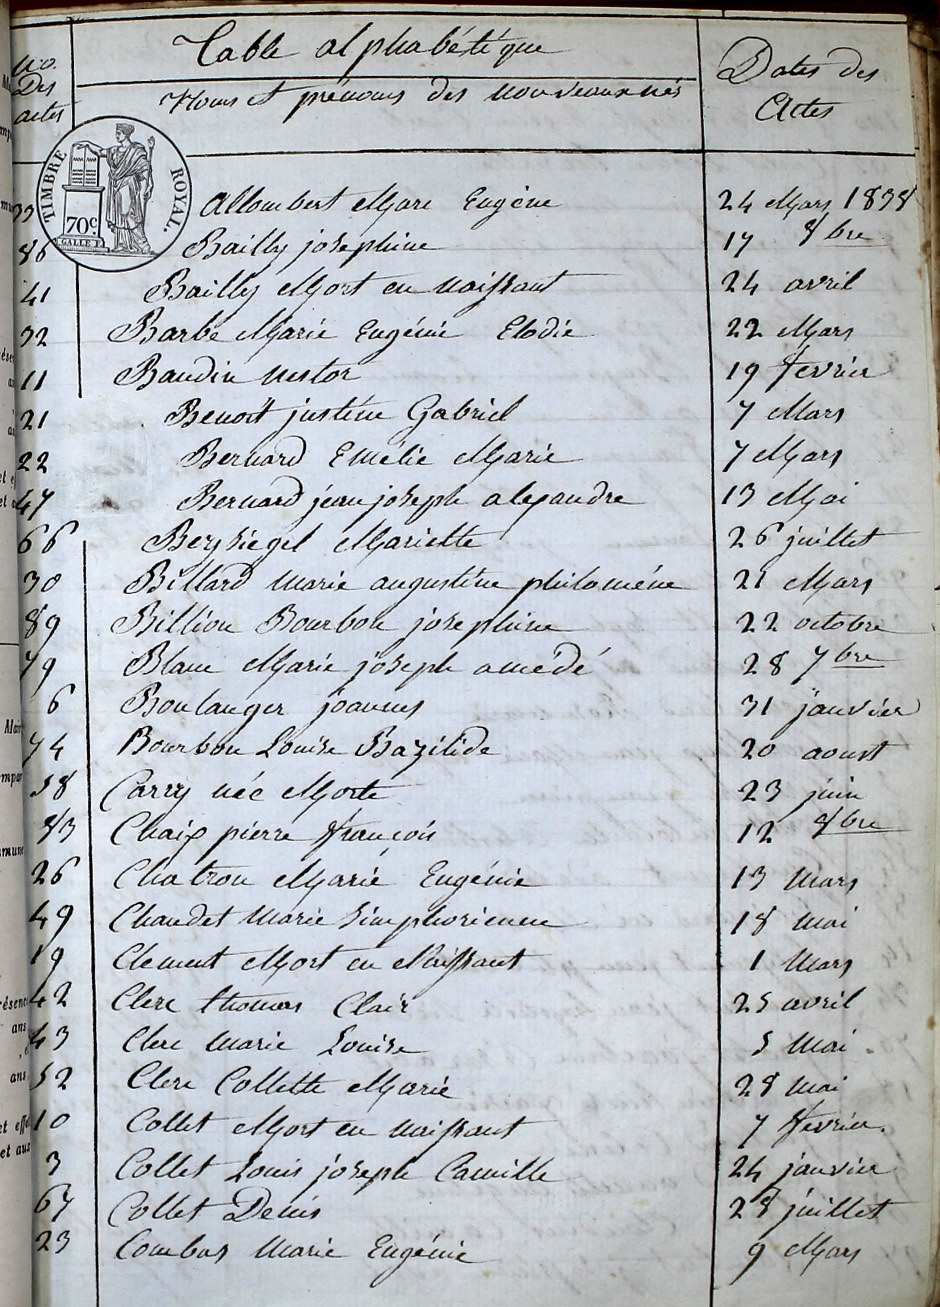 Nos Des actes
Table alphabétique
Noms et prénoms des nouveaux nés
Dates des Actes
TIMBRE ROYAL.
70c
GALLE
33 Allombert Marc Eugène 24 Mars 1838
86 Bailly josephine 17 8bre
41 Bailly Mort en naissant 24 avril
32 Barbe Marie Eugénie Elodie 22 Mars
11 Baudin nestor 19 fevrier
21 Benoit justine Gabriel 7 Mars
22 Bernard Emélie Marie 7 Mars
47 Bernard jean joseph alexandre 13 Mai
66 Marictte 26 juillet
30 Billard marie augustine philomène 21 Mars
89 Billion Bourbon josephine 22 octobre
79 Blanc Marie joseph amedé 28 7bre
6 Boulanger joannes 31 janvier
74 Bourbon Louise Bazilide 20 aoust
58 Carry née Morte 23 juin
83 Chaix pierre françois 12 8bre
26 Chatron Marie Eugénie 13 mars
49 Chaudet marie simphorienne 18 mai
19 Clement Mort en Naissant 1 mars
42 Clerc thomas Clair 25 avril
43 Clerc marie Louise 5 mai
52 Clerc Collette Marie 28 mai
10 Collet Mort en naissant 7 fevrier.
3 Collet Louis joseph Camille 24 janvier
67 Collet Denis 28 juillet
23 Combas marie Eugénie 9 Mars